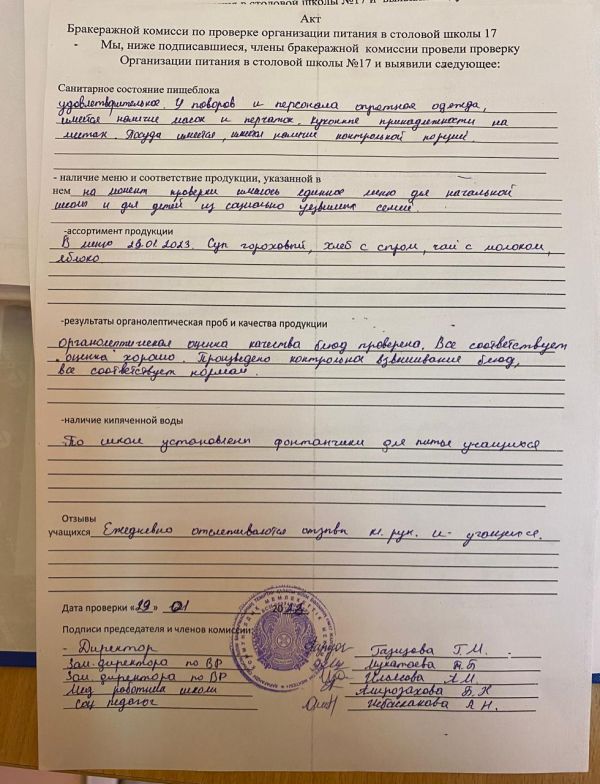 Акт
Бракеражной комисси по проверке организации питания в столовой школы 17
- Мы, ниже подписавшиеся, члены бракеражной комиссии провели проверку
Организации питания в столовой школы №17 и выявили следующее:
Санитарное состояние пищеблока
удовлетворительное. У поваров и персонала опрятная одежда,
имеется наличие масок и перчаток. Кухонные принадлежности на
местах. Посуда имеется, имеется наличие контрольной порции.
- наличие меню и соответствие продукции, указанной в
нем на момент проверки имелось единное меню для начальной
школы и для детей из социально уязвимых семей.
-ассортимент продукции
В меню 29.01.2023. Суп гороховый, хлеб с сыром, чай с молоком,
яблоко
-результаты органолептическая проб и качества продукции
Органолептическая оценка качества блюд проверена. Все соответствует
оценка хорошо. Произведено контрольное взвешивание блюд,
все соответствует нормам.
-наличие кипяченной воды
По школе установлены фонтанчики для питья учащихся
Отзывы
учащихся Ежедневно отслеживаются отзывы кл. рук. и учащихся.
Дата проверки «29» 01 20
Подписи председателя и членов комиссии:
- Директор Газизова Г.М.
Зам. директора по ВР
Зам. директора по ВР А.М.
Мед работник школы
Соц педагог А.Н.